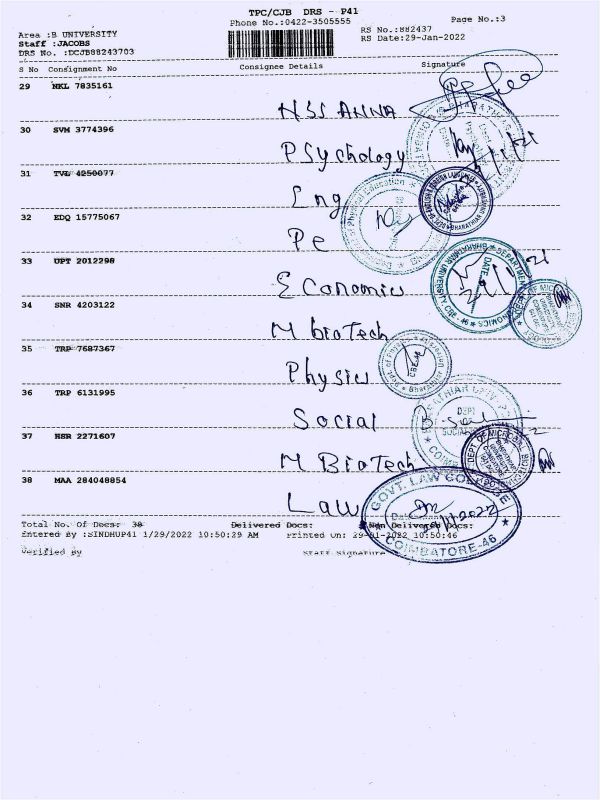 TPC/CJB DRS - P41
Phone No.:0422-3505555
Page No.:3
Area :B UNIVERSITY
RS No.:882437
Staff :JACOBS
RS Date:29-Jan-2022
DRS No. :DCJB88243703
S No Consignment No Consignee Details Signature
29 NKL 7835161
NSS ANNA
30 SVM 3774396
Psychology
31 TVL 4250077
Eng
32 EDQ 15775067
Pe
33 UPT 2012298
Economics
34 SNR 4203122
M bioTech
35 TRP 7687367
Physics
36 TRP 6131995
Social
37 HSR 2271607
M BioTech
38 MAA 284048854
Law
GOVT. LAW COLLEGE
COIMBATORE-46
Total No. Of Docs: 38 Delivered Docs: Non Delivered Docs:
Entered By :SINDHUP41 1/29/2022 10:50:29 AM Printed On: 29-01-2022 10:50:46
Verified By Staff Signature